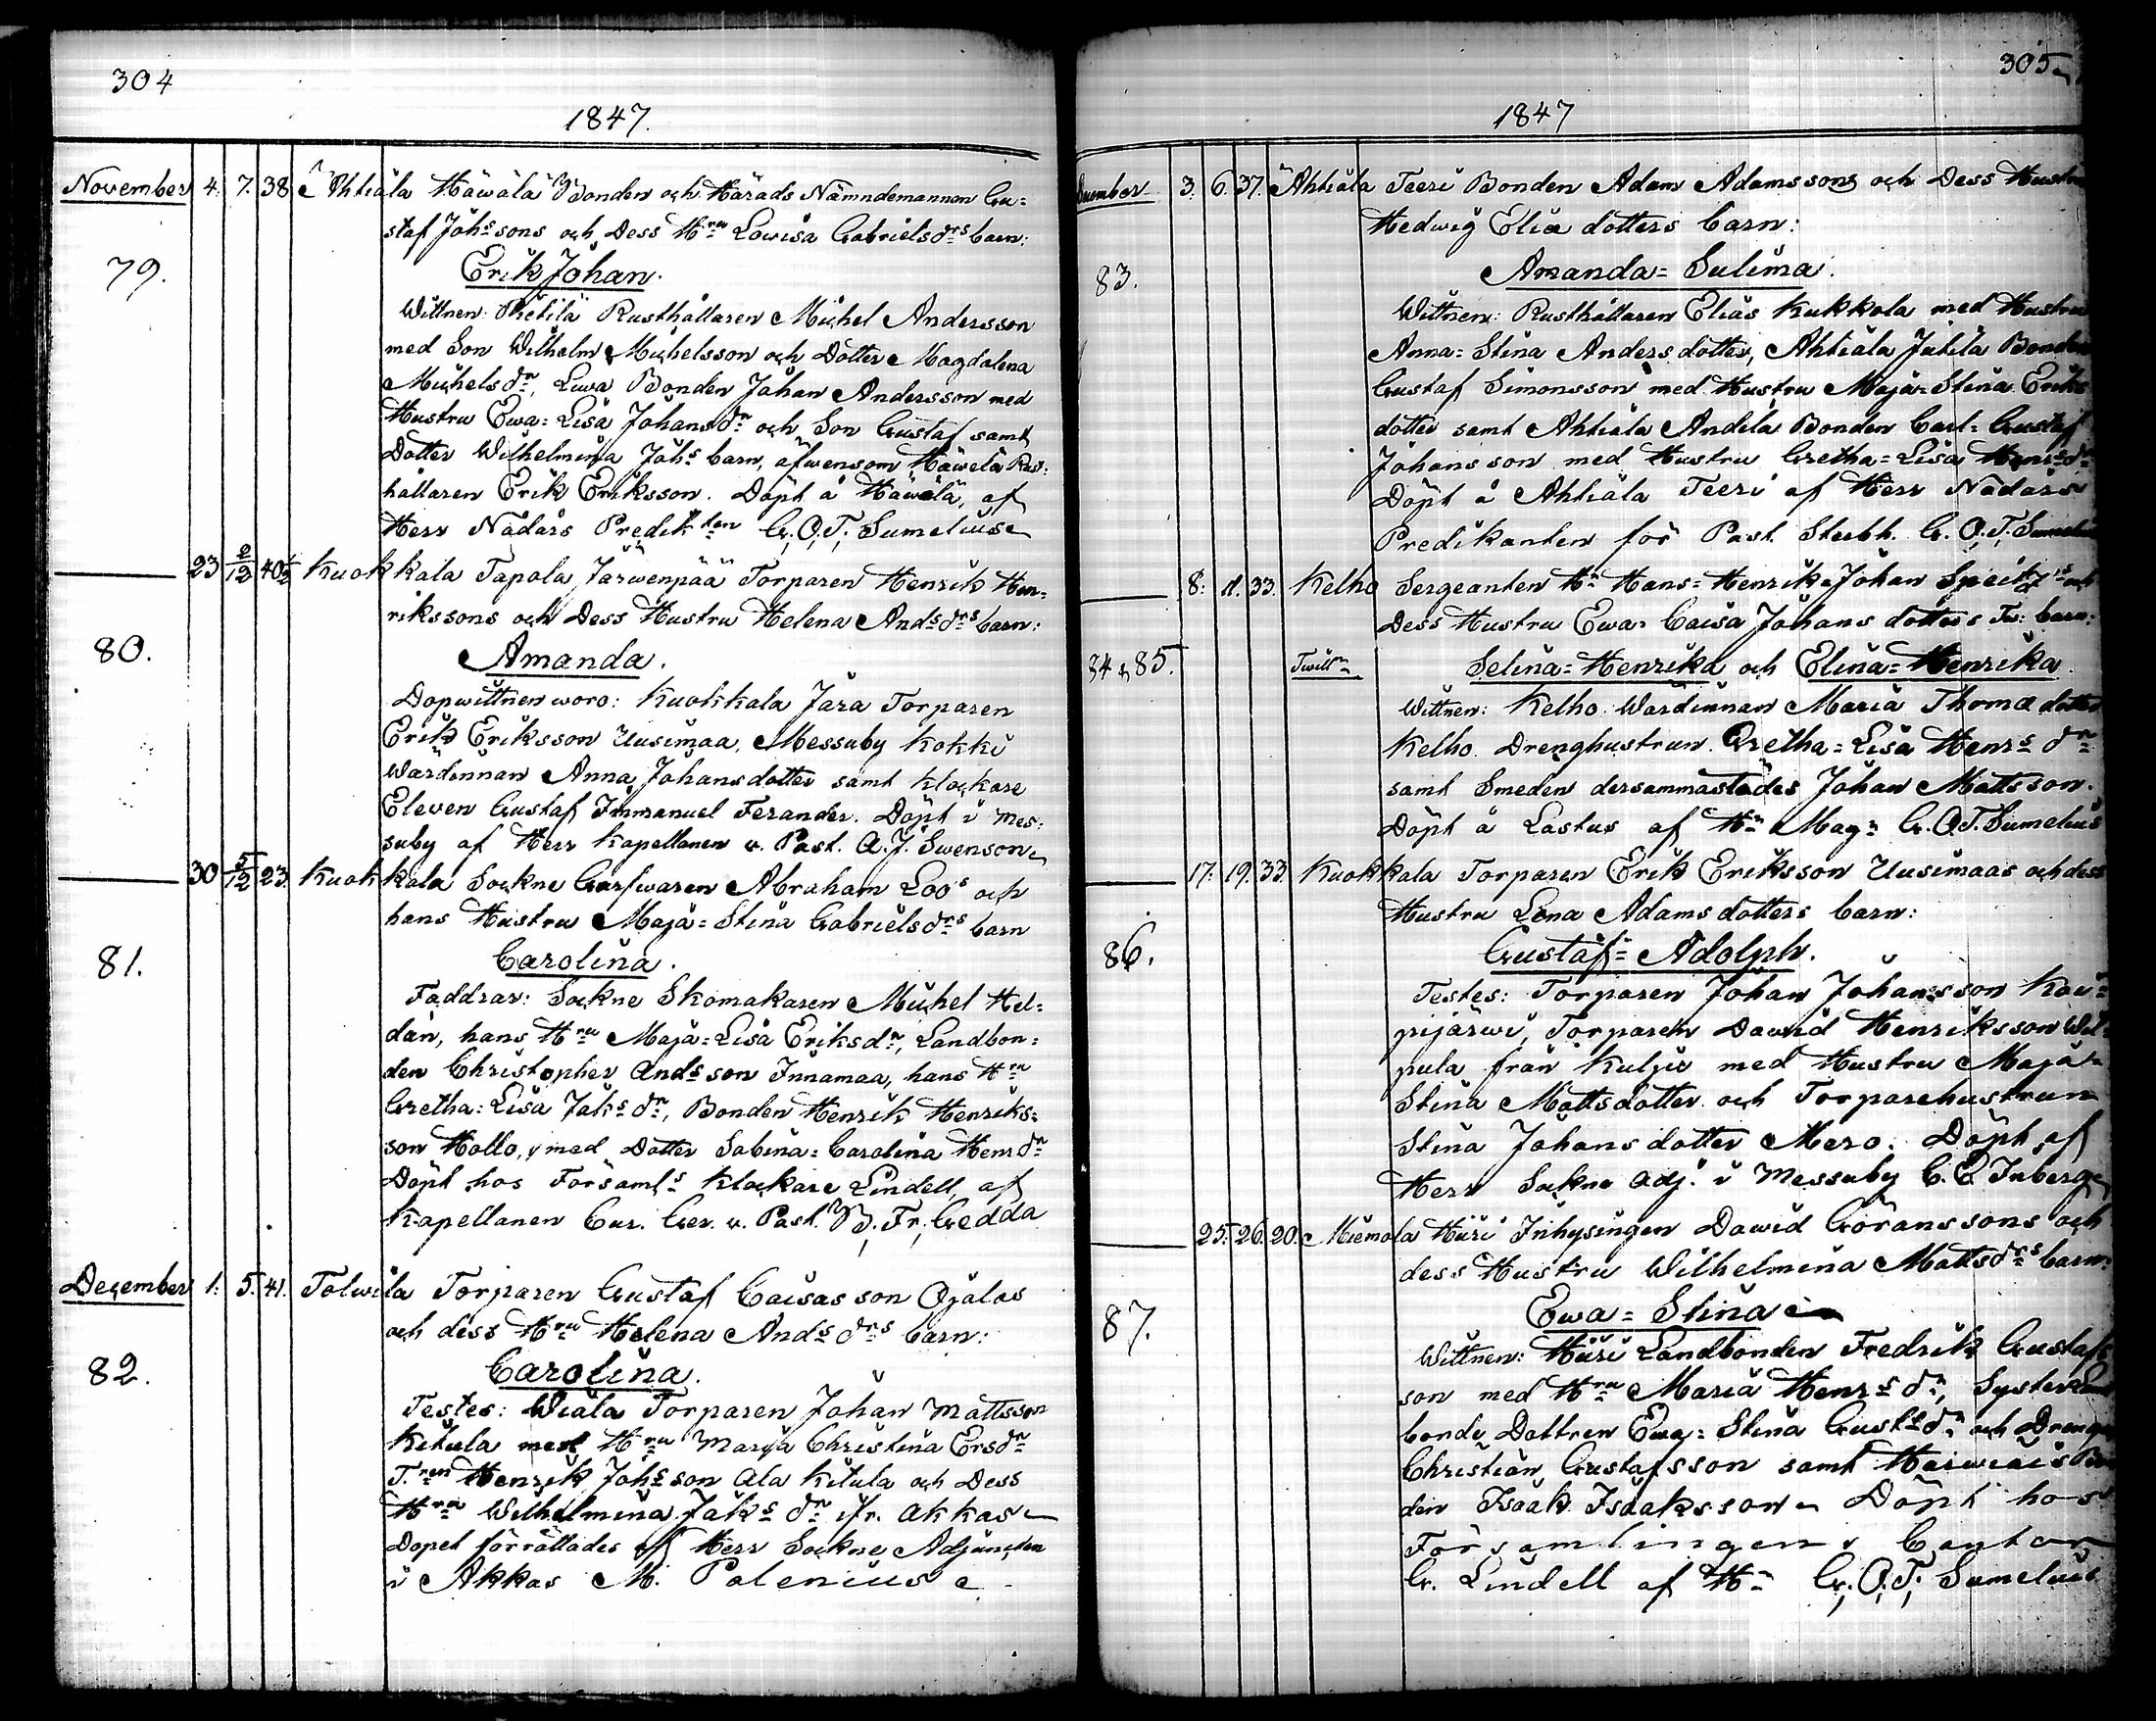 304
1847.
November 4. 7. 38 Ahtiala Häwälä Bonden och Härads Nämndemannen Gu=
staf Johssons och Dess Hru Lowisa Gabrielsdrs barn:
79.
Erik Johan.
Wittnen: Rusthållaren Michel Andersson
med Son Wilhelm Michelsson och Dotter Magdalena
Michelsdr, Luwa Bonden Johan Andersson med
Hustru Ewa=Lisa Johansdr och Son Gustaf samt
Dotter Wilhelmina Johs barn, äfwensom Häwelä Rust:
hållaren Erik Eriksson. Döpt å Häwälä, af
Herr Nådårs Predikten G.O.T. Sumelius
23 2/12 40½ Kuokkala Tapola Järwenpää Torparen Henrik Hen=
rikssons och Dess Hustru Helena Andsdrs barn:
80.
Amanda.
Dopwittnen woro: Kuokkala Jara Torparen
Erik Eriksson Uusimaa, Messuby Kokki
Wärdinnan Anna Johansdotter samt Klockare
Eleven Gustaf Immanuel Ferander. Döpt i Mes:
suby af Herr Kapellanen v. Past. A.J. Swenson
30 5/12 23 Kuokkala Sockne Garfwaren Abraham Loos och
hans Hustru Maja=Stina Gabrielsdrs barn
81.
Carolina.
Faddrar: Sockne Skomakaren Michel Hel=
dan, hans Hru Maja=Lisa Eriksdr, Landbon:
den Christopher Andsson Innamaa, hans Hru
Gretha=Lisa Jaksdr, Bonden Henrik Henriks=
son Hollo, med Dotter Sabina=Carolina Henrdr
Döpt hos Församls Klockare Lindell, af
Kapellanen Cur. Ger. v. Past. B. Fr. Gedda
December 1. 5. 41. Tolwila Torparen Gustaf Caisasson Ojalas
och dess Hru Helena Andsdrs barn:
82.
Carolina.
Testes: Wiala Torparen Johan Mattsson
Kitula med Hru Marja Christina Ersdr
T.ren Henrik Johsson Ala Kitula och Dess
Hru Wilhelmina Jaksdr ifr. Akkas
Dopet förrättades af Herr Sockne Adjuncten
i Akkas M. Polenius
305
1847
December 3. 6. 37. Ahtiala Teeri Bonden Adam Adamssons och Dess Hustru
Hedwig Eliæ dotters barn:
83.
Amanda=Sulima.
Wittnen: Rusthållaren Elias Kukkola med Hustru
Anna=Stina Anders dotter, Ahtiala Jutila Bonden
Gustaf Simonsson med Hustru Maja=Stina Eriks
dotter samt Ahtiala Andila Bonden Carl=Gustaf
Johansson med Hustru Gretha=Lisa Henrsdr
Döpt å Ahtiala Teeri af Herr Nådårs
Predikanten för Past. Stubb. G.O.T. Sumelius
8. 11. 33. Kelho Sergeanten Hr Hans=Henrik=Johan och
Dess Hustru Ewa=Caisa Johans dotters Tw: barn:
84 & 85.
Twilln Selina=Henrika och Elina=Henrika.
Wittnen: Kelho Wärdinnan Maria Thomæ dotter
Kelho Drenghustrun Gretha=Lisa Henrs dr
samt Smeden dersammastädes Johan Mattsson.
Döpt å Lastus af Hr Magr G.O.T. Sumelius
17. 19. 33. Kuokkala Torparen Erik Eriksson Uusimaas och dess
Hustru Lena Adams dotters barn:
86.
Gustaf=Adolph.
Testes: Torparen Johan Johansson Kau=
pijärwi, Torparen Dawid Henriksson Wil=
pula från Kulju med Hustru Maja=
Stina Mattsdotter och Torparehustrun
Stina Johansdotter Mero. Döpt af
Herr Sockne Adj. i Messuby C.E. Inberg
25. 26. 20. Miemola Hiiri Inhysingen Dawid Göranssons och
dess Hustru Wilhelmina Mattsdrs barn:
87.
Ewa=Stina
Wittnen: Hiiri Landbonden Fredrik Gustafs
son med Hru Maria Henrsdr, Syster
bonde Dottren Ewa=Stina Gustsdr och Drengen
Christian Gustafsson samt
den Isaak Isaaksson Döpt hos
Församlingens Cantor
G. Lindell af Hr G.O.T. Sumelius